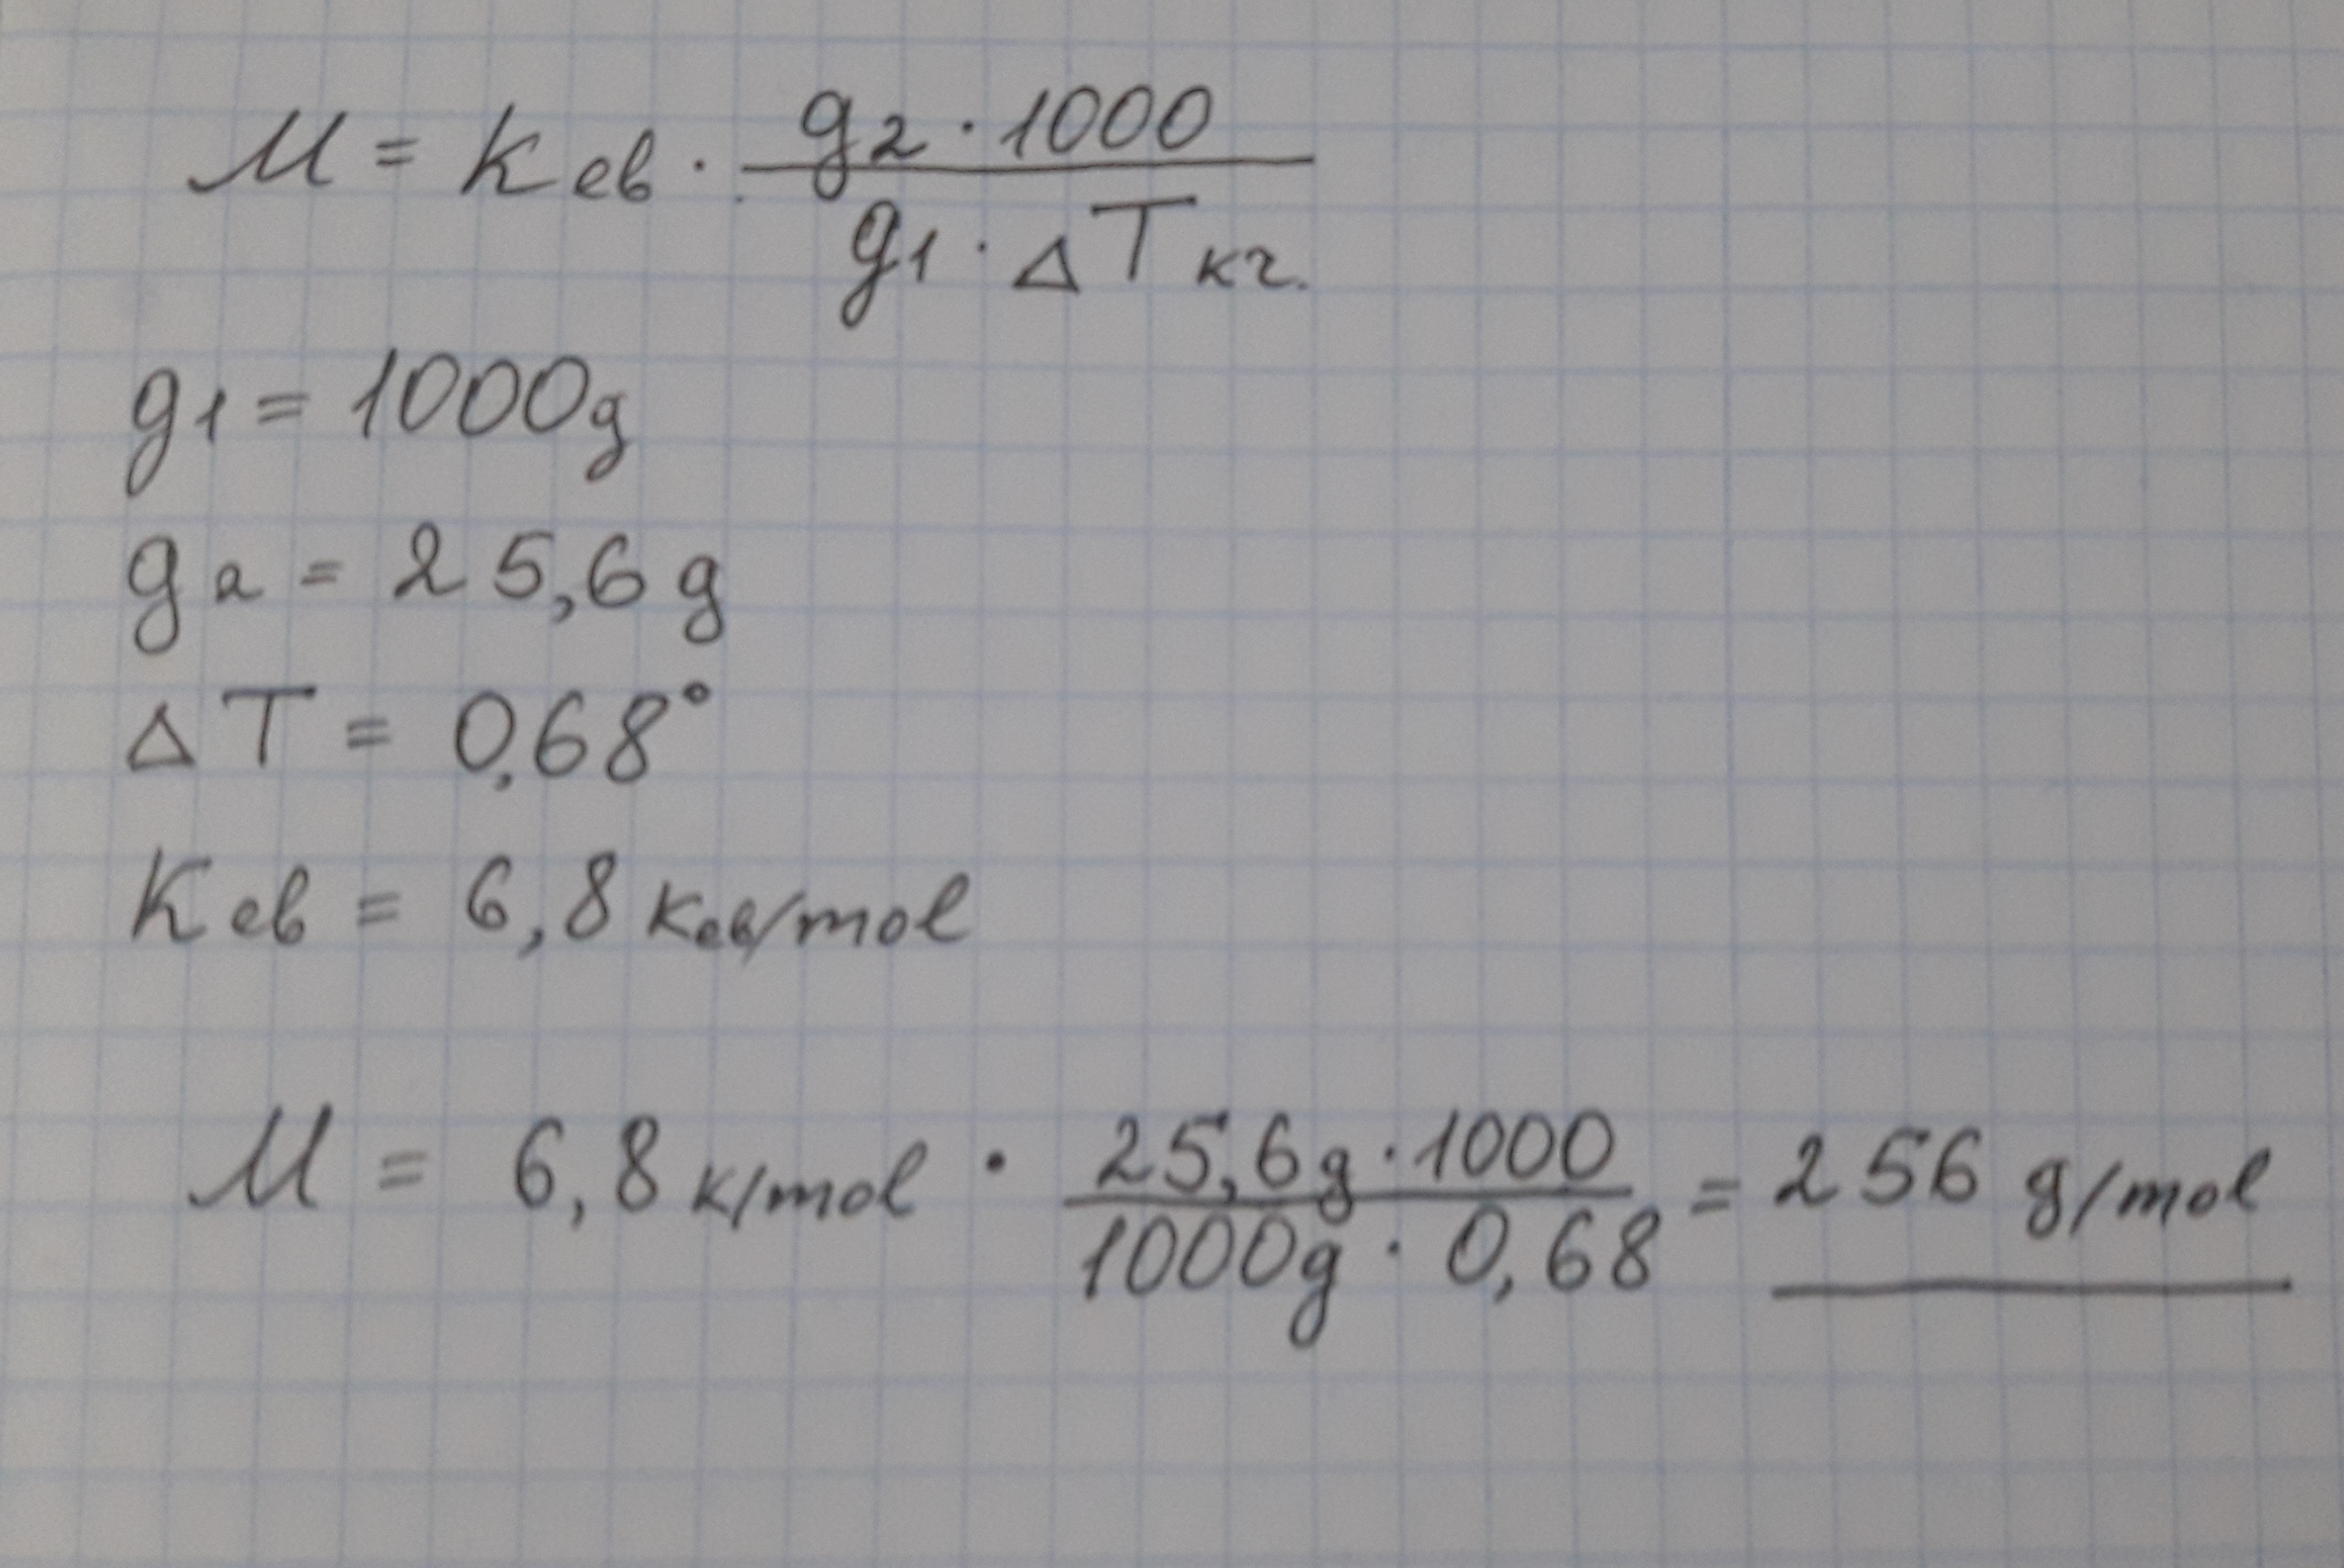 M = Kев · g2 · 1000 / g1 · ΔTкг.
g1 = 1000g
g2 = 25,6 g
ΔT = 0,68°
Kев = 6,8 Kев/mol
M = 6,8 K/mol · 25,6g · 1000 / 1000g · 0,68 = 256 g/mol